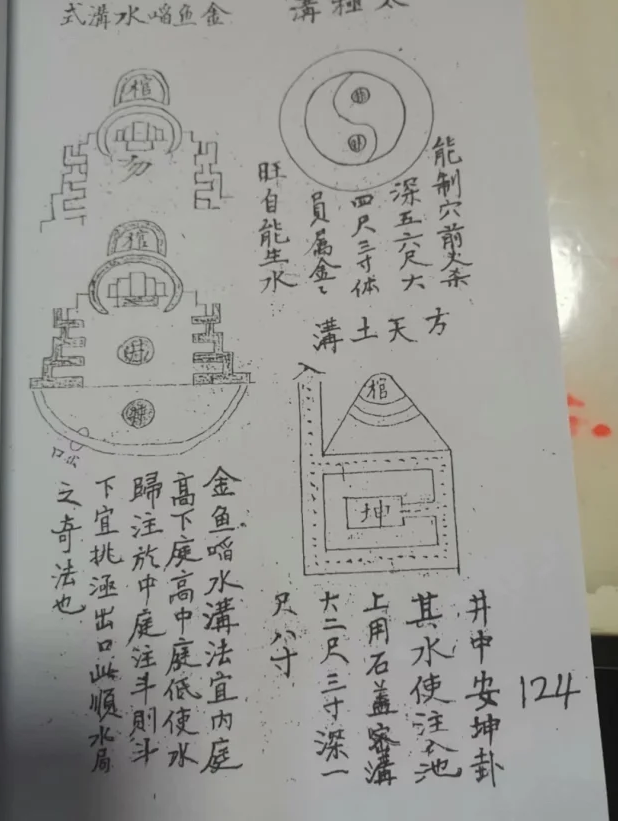 太極溝
能制穴前火杀
深五六尺大
四尺三寸体
員属金々
旺自能生水
方天土溝
棺
坤
井中安坤卦
其水使注入池
上用石蓋密溝
大二尺三寸深一
尺八寸
金鱼啗水溝式
棺
棺
出口
金鱼啗水溝法宜内庭
高下庭高中庭低使水
歸注於中庭注斗則斗
下宜挑出口此順水局
之奇法也
124